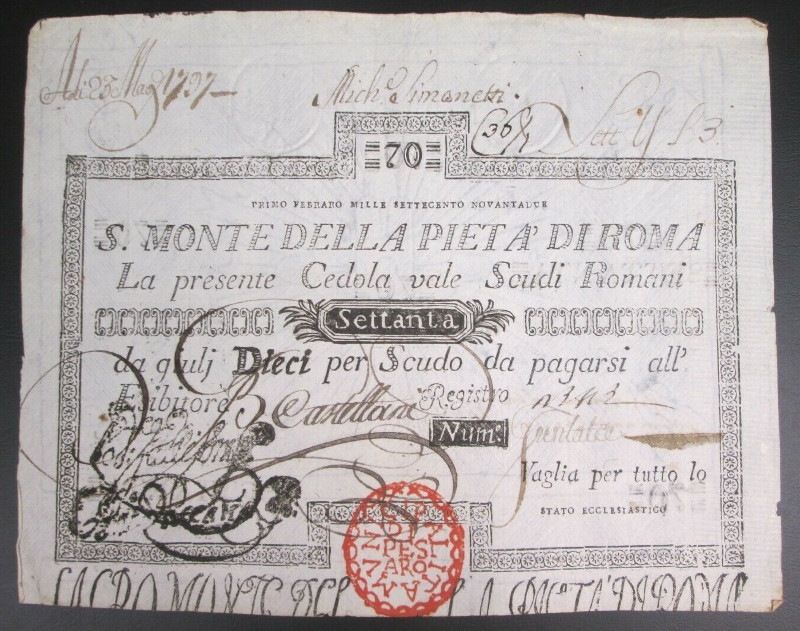 Adi 23 Mag 1797
Mich.e Simonetti.
Lett Y S 3
70
PRIMO FEBRARO MILLE SETTECENTO NOVANTADUE
S. MONTE DELLA PIETA' DI ROMA
La presente Cedola vale Scudi Romani
Settanta
da giulj Dieci per Scudo da pagarsi all'
Esibitore Castellani Registro
Num.
Vaglia per tutto lo
70
STATO ECCLESIASTICO
PES
ARO
SACRO MONTE DEL LA PIETA' DI ROMA